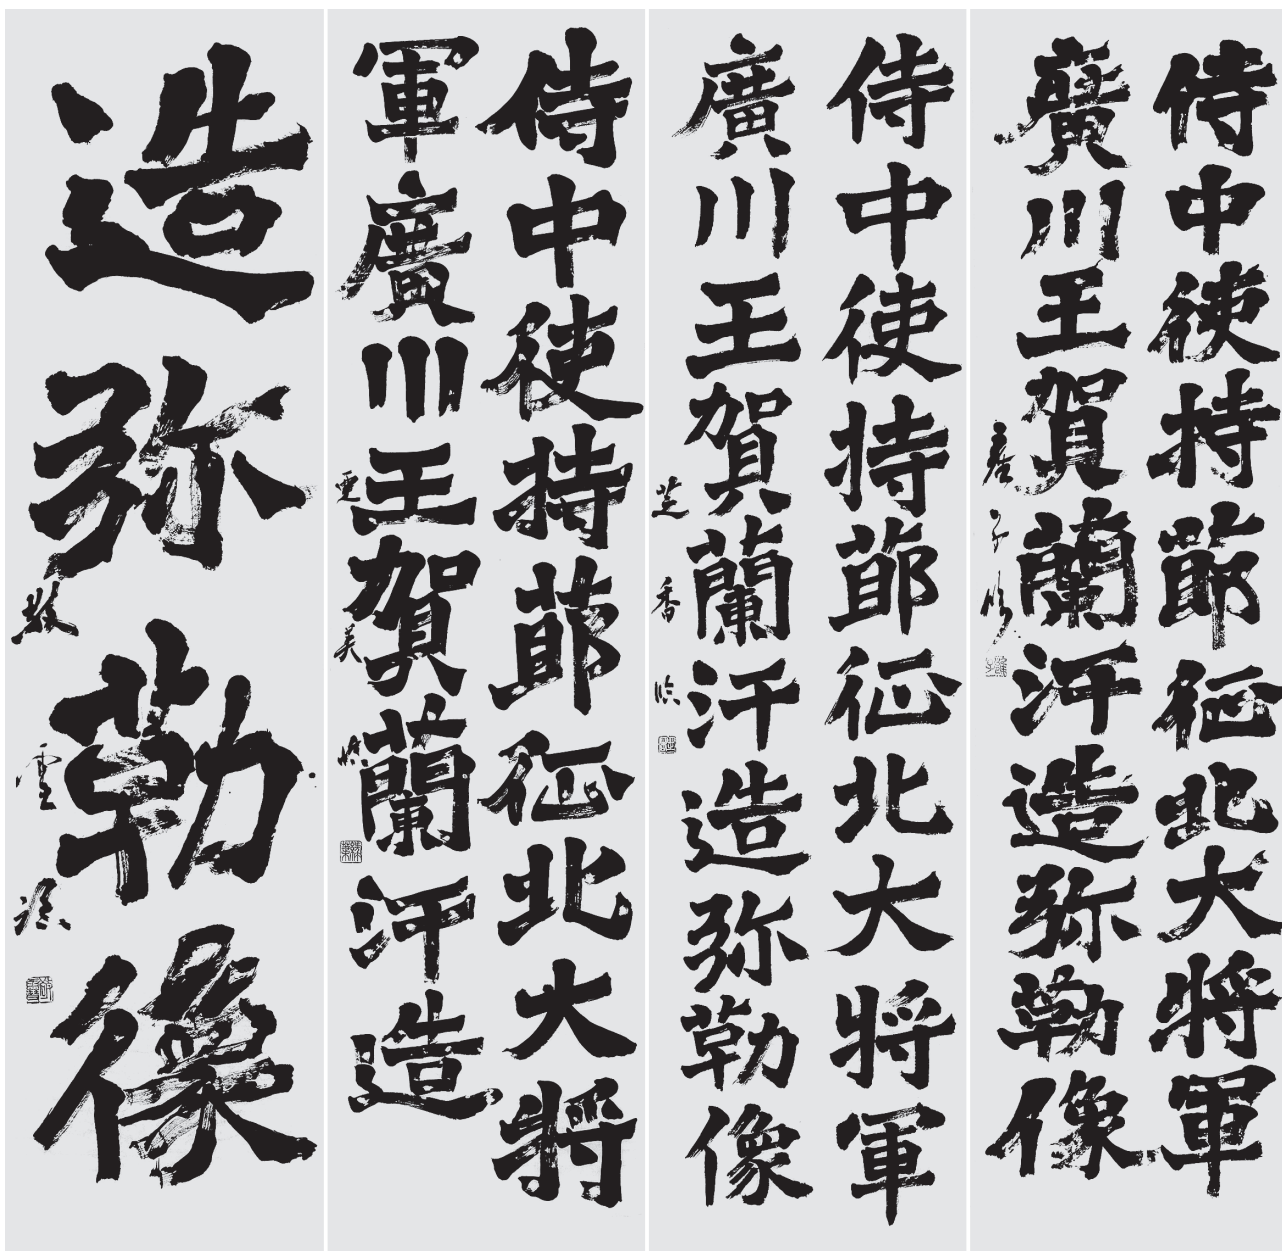 侍中使持節征北大將軍
廣川王賀蘭汗造弥勒像
彦子臨
侍中使持節征北大將軍
廣川王賀蘭汗造弥勒像
芝香臨
侍中使持節征北大將
軍廣川王賀蘭汗造
造弥勒像
雲臨